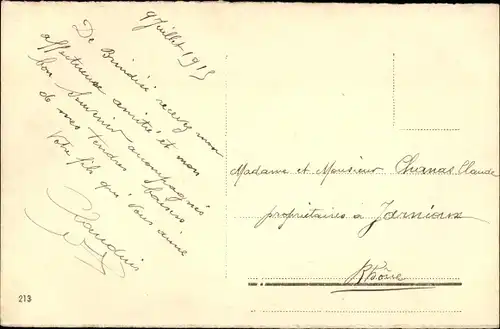 9 Juillet 1915
De Brindisi recevez mon
affectueuse amitié et mon
bon Souvenir accompagnés
de mes tendres baisers
Votre fils qui Vous aime
Claudius
Madame et Monsieur Chanas Claude
propriétaires à Jarnioux
Rhône
213